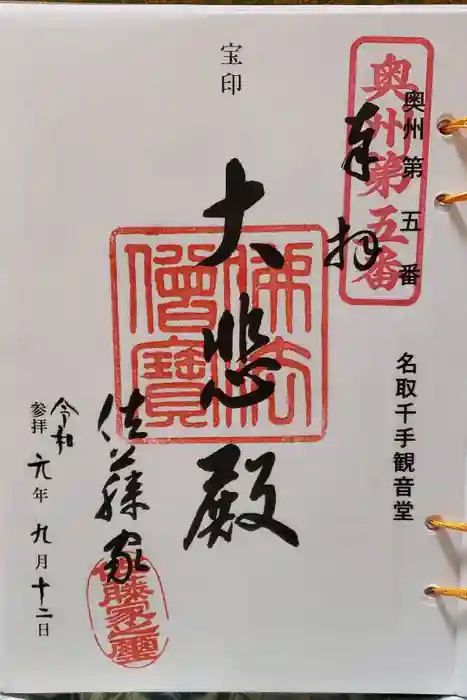 奥州第五番
奥州第五番
名取千手観音堂
奉拝
宝印
大悲殿
佛法僧寳
佐藤家
令和
参拝元年九月十二日